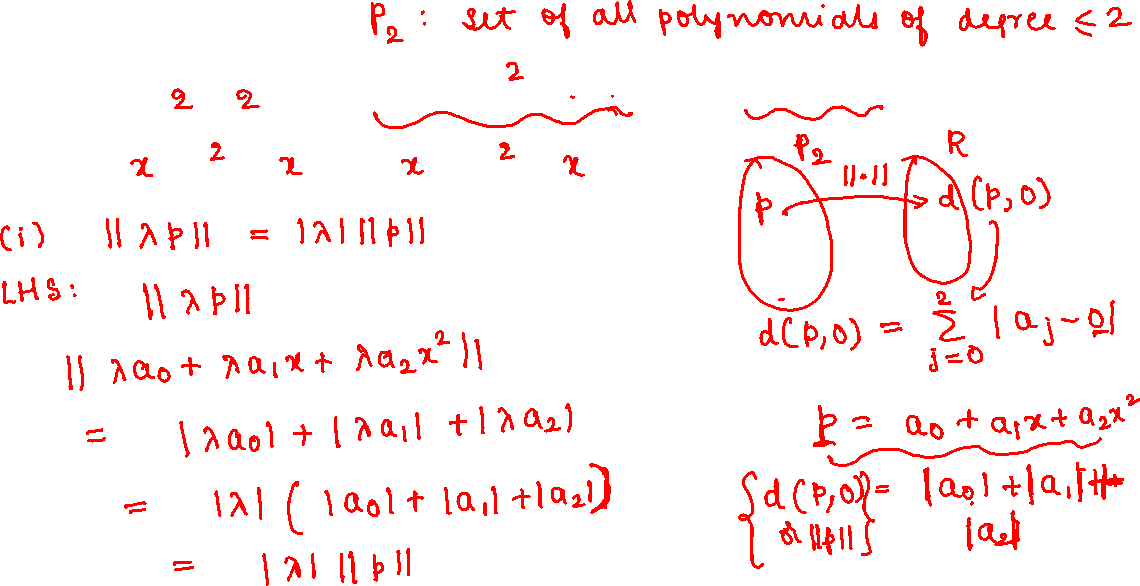 P₂ : set of all polynomials of degree ≤ 2
2
2 2
x 2 x x 2 x
P₂ R
||·||
p d(p,0)
(i) ||λp|| = |λ| ||p||
LHS: ||λp||
|| λa₀ + λa₁x + λa₂x² ||
= |λa₀| + |λa₁| + |λa₂)
= |λ| ( |a₀| + |a₁| + |a₂| )
= |λ| ||p||
d(p,0) = Σ_{j=0}^{2} | a_j - 0 |
p = a₀ + a₁x + a₂x²
{ d(p,0) = |a₀| + |a₁| +
or ||p|| } |a₂|